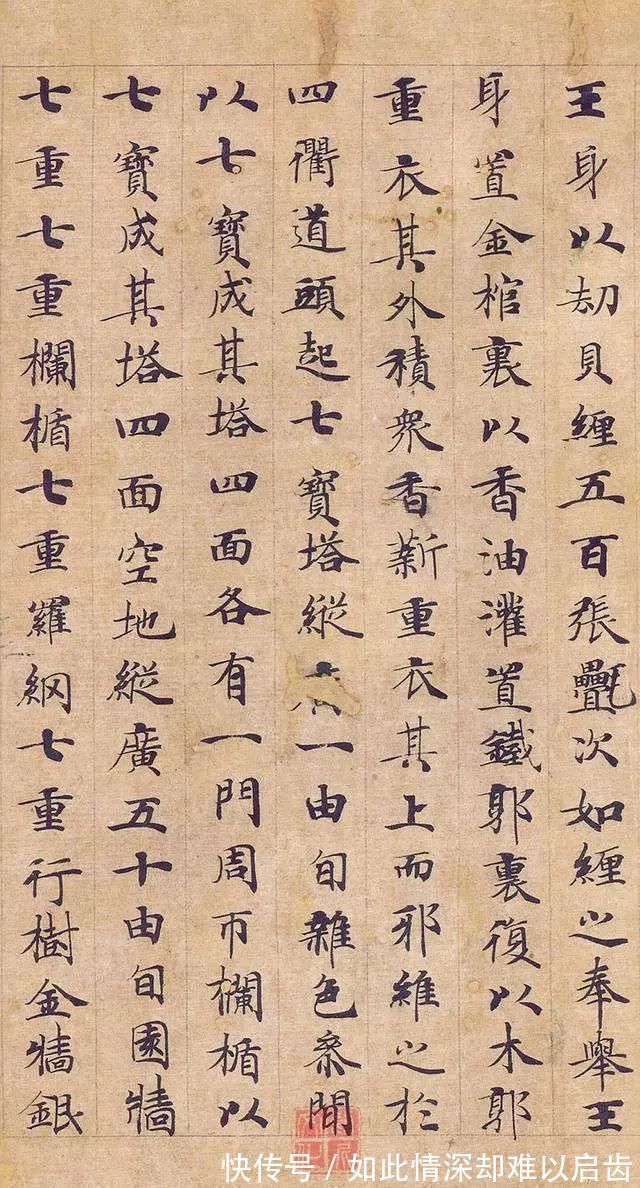 王身以劫貝纏五百張疊次如纏之奉舉王
身置金棺裏以香油灌置鐵郭裏復以木郭
重衣其外積眾香薪重衣其上而邪維之於
四衢道頭起七寶塔縱一由旬雜色叅間
以七寶成其塔四面各有一門周帀欄楯以
七寶成其塔四面空地縱廣五十由旬園牆
七重七重欄楯七重羅網七重行樹金牆銀
快传号/如此情深却难以启齿